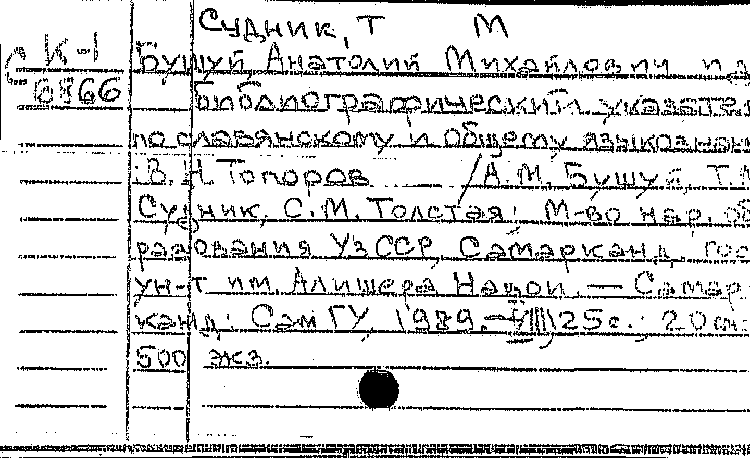 Судник, Т М
К-1 Бушуй, Анатолий Михайлович и д
6866 Библиографический указател
по славянскому и общему языкознан
В. Н. Топоров / А. М. Бушуй, Т. М
Судник, С. М. Толстая; М-во нар. об
разования УзССР, Самарканд. гос
ун-т им. Алишера Навои. — Самар
канд: СамГУ, 1989. — 125 с.; 20 см.
500 экз.